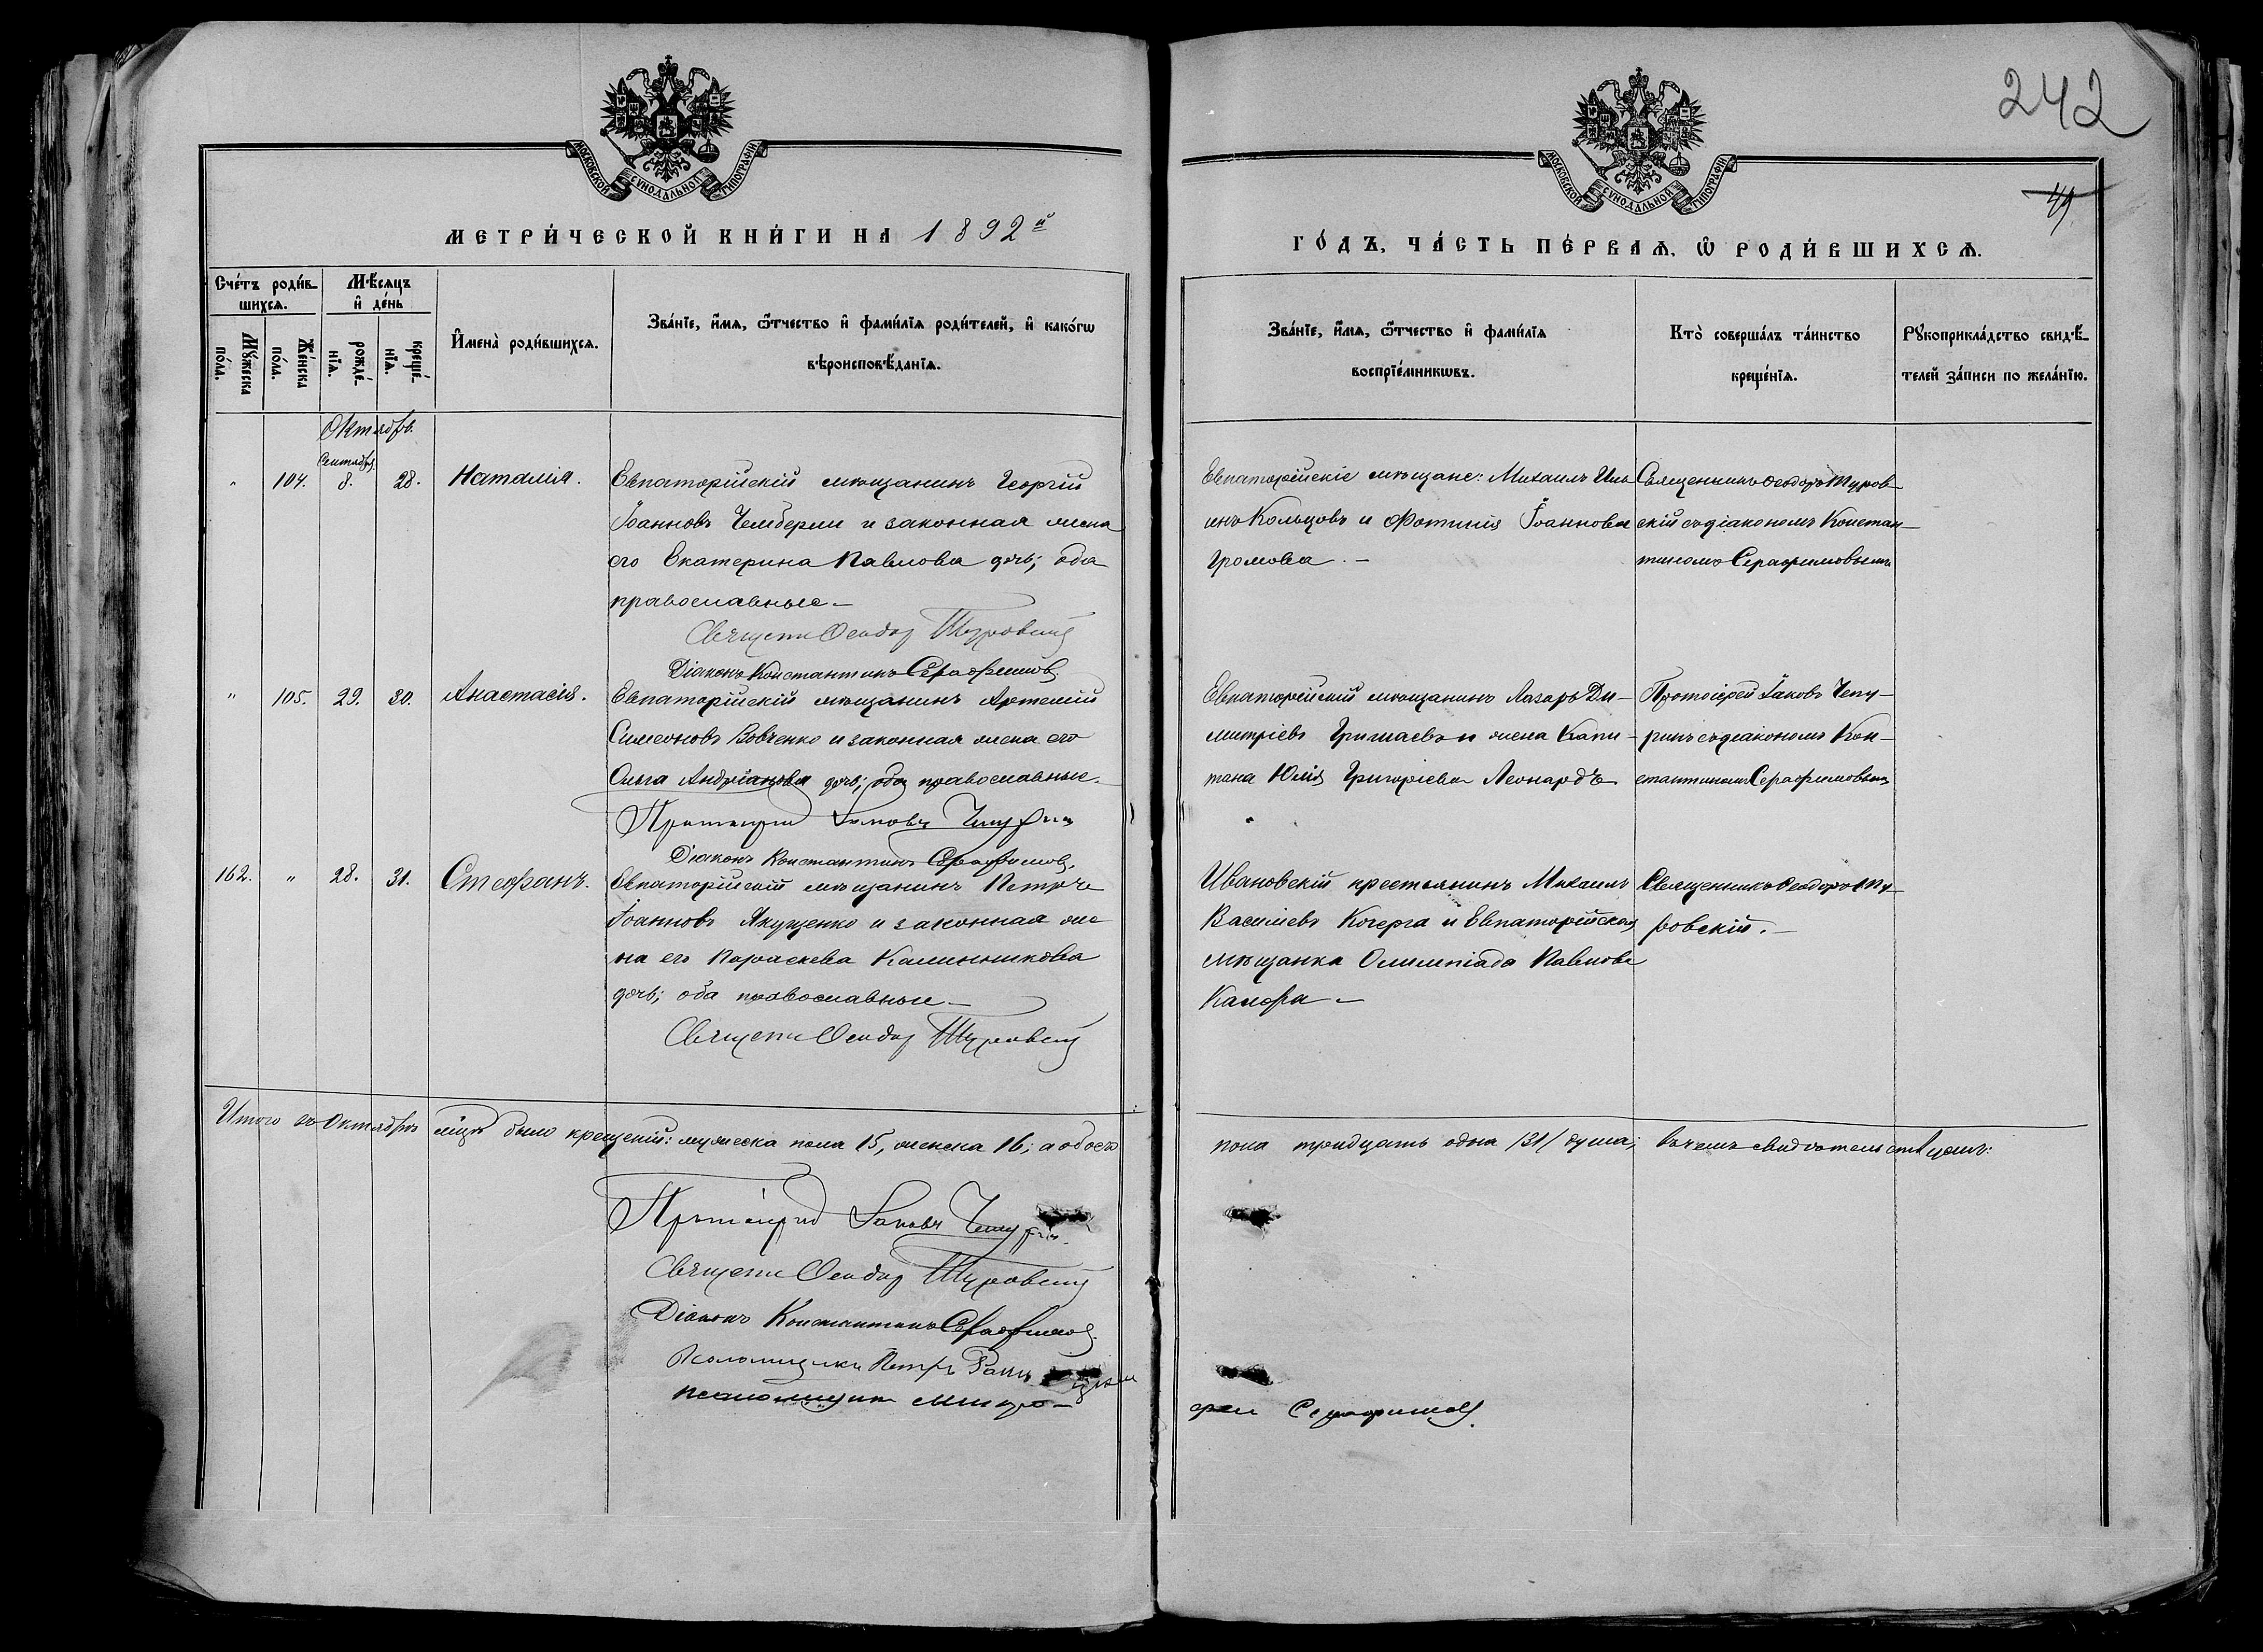 242
49
МОСКОВСКОЙ СУНОДАЛЬНОЙ ТИПОГРАФІИ
МОСКОВСКОЙ СУНОДАЛЬНОЙ ТИПОГРАФІИ
МЕТРИ́ЧЕСКОЙ КНИ́ГИ НА 1892й
ГО́ДЪ, ЧА́СТЬ ПЕ́РВАѦ, Ѿ РОДИ́ВШИХСѦ.
Сче́тъ роди́в-
шихсѧ.
Мꙋ́жеска по́ла.
Же́нска по́ла.
Мѣ́сѧцъ
и҆ де́нь
рожде́-
нїѧ.
креще́-
нїѧ.
И҆мена̀ роди́вшихсѧ.
Зва́нїе, и҆́мѧ, ѻ҆́тчество и҆ фами́лїѧ роди́телей, и҆ како́гѡ
вѣроисповѣ́данїѧ.
Зва́нїе, и҆́мѧ, ѻ҆́тчество и҆ фами́лїѧ
воспрїе́мникѡвъ.
Кто̀ соверша́лъ та́инство
креще́нїѧ.
Рꙋкоприкла́дство свидѣ́-
телей за́писи по жела́нїю.
Октябрь.
Сентября
" 104. 8. 28. Наталія.
Евпаторійскій мѣщанинъ Георгій
Іоанновъ Чемберли и законная жена
его Екатерина Павлова дочь; оба
православные.—
Священн Ѳеодор Туровскій
Діаконъ Константинъ Серафимов.
Евпаторійскіе мѣщане: Михаилъ Иль
инъ Кольцовъ и Фотинія Іоаннова
Громова.—
Священникъ Ѳеодоръ Туров-
скій съ діакономъ Констан-
тиномъ Серафимовымъ
" 105. 29. 30. Анастасія.
Евпаторійскій мѣщанинъ Артемій
Симеоновъ Вовченко и законная жена его
Ольга Андріанова дочь; оба православные.—
Протоіерей Іаковъ Чепурин
Діаконъ Константинъ Серафимов.
Евпаторійскій мѣщанинъ Лазарь Ди-
митріевъ и жена Капи-
тана Юлія Григоріева Леонардъ
Протоіерей Іаковъ Чепу-
ринъ съ діакономъ Кон-
стантиномъ Серафимовымъ
162. " 28. 31. Стефанъ.
Евпаторійскій мѣщанинъ Петръ
Іоанновъ Якущенко и законная же
на его Параскева Калинникова
дочь; оба православные—
Священн Ѳеодор Туровскій
Ивановскій крестьянинъ Михаилъ
Васильевъ Кочерга и Евпаторійская
мѣщанка Олимпіада Павлова
Священникъ Ѳеодоръ Ту-
ровскій.—
Итого въ Октябрѣ мцѣ было крещеній: мужеска пола 15, женска 16; а обоего
пола тридцать одна /31/ душа; въ чемъ свидѣтельствуемъ:
Протоіерей Іаковъ Чепурин.
Священн Ѳеодор Туровскій
Діаконъ Константинъ Серафимов.
Псаломщикъ Петръ
псаломщик Митро-
фан Серафимов.